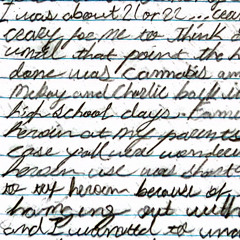 I was about 21 or 22 ... 
for me to think
until that point the
done was cannabis
McKay and Charlie back
high school days. I
heroin at my parents
case y'all was
heroin use was
to try heroin because of
hanging out with
and I wanted to